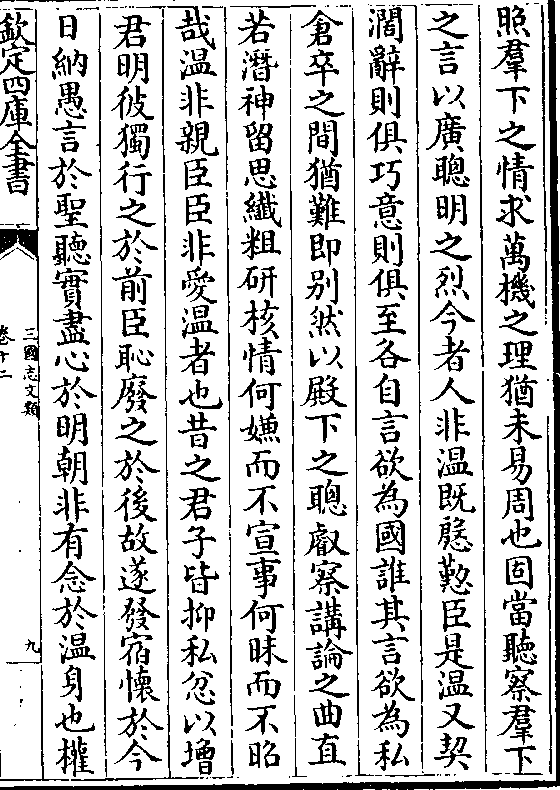 照羣下之情求萬機之理猶未易周也固當聽察羣下
之言以廣聰明之烈今者人非温既慇懃臣是温又契
濶辭則俱巧意則俱至各自言欲為國誰其言欲為私
倉卒之間猶難即别然以殿下之聰叡察講論之曲直
若潛神留思纎粗研核情何嫌而不宣事何昧而不昭
哉温非親臣臣非愛温者也昔之君子皆抑私忿以增
君明彼獨行之於前臣恥廢之於後故遂發宿懷於今
日納愚言於聖聽實盡心於明朝非有念於温身也權
欽定四庫全書
三國志文類
卷十二
九